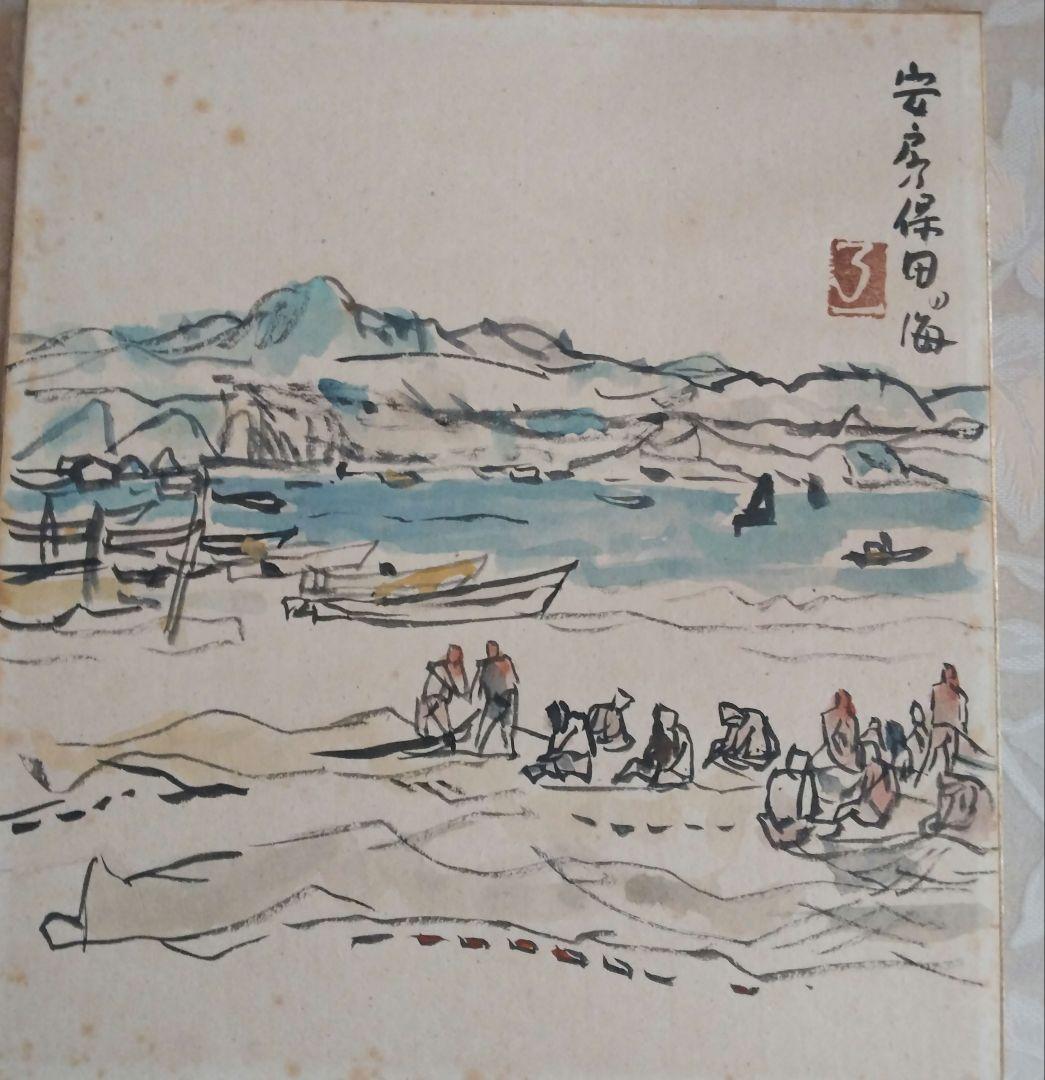 安房保田の海
了